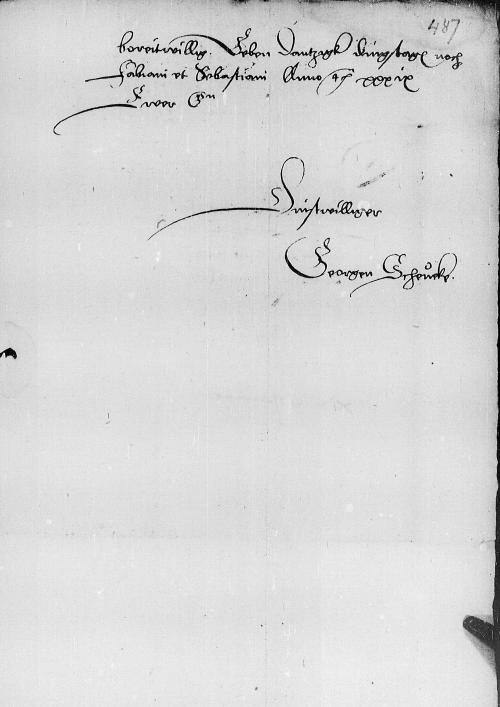 487
bereitwillig. Geben Dantzigk dingstages noch
Fabiani et Sebastiani Anno etc xxxix
Ewer Gn
Dinstwilliger
Georgen Scheucke.